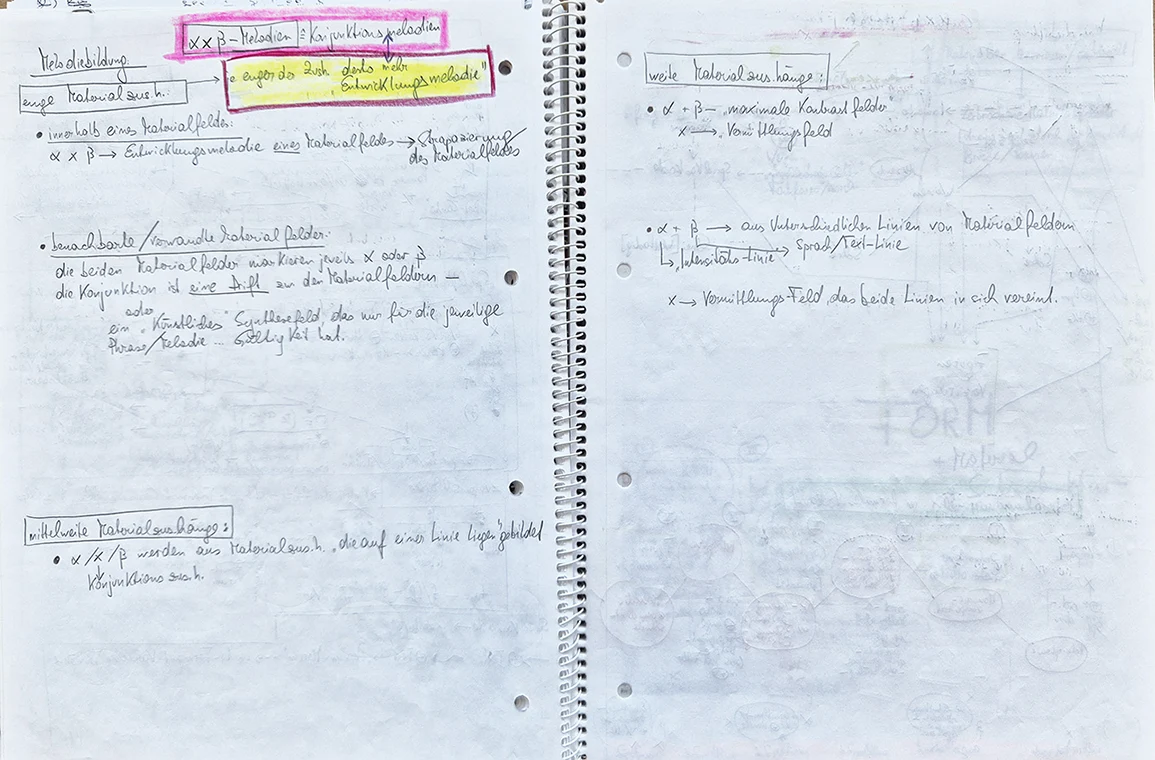 α x β – Melodien = Konjunktionsmelodien
Melodiebildung:
enge Materialzus.h.:
"je enger der Zush. desto mehr
"Entwicklungsmelodie"
• innerhalb eines Materialfeldes:
α x β → Entwicklungsmelodie eines Materialfeldes → Strapazierung
des Materialfeldes
• benachbarte/verwandte Materialfelder:
die beiden Materialfelder markieren jeweils α oder β
die Konjunktion ist eine Drift zu den Materialfeldern –
oder
ein "Künstliches" Synthesefeld, das nur für die jeweilige
Phrase/Melodie ... Gültigkeit hat.
mittelweite Materialzus.hänge:
• α /x /β werden aus Materialzus.h. "die auf einer Linie liegen" gebildet
Konjunktionszus.h.
weite Materialzus.hänge:
• α + β – "maximale Kontrastfelder
x → "Vermittlungsfeld
• α + β → aus Unterschiedlichen Linien von Materialfeldern
↳ "Intensitäts-Linie → Sprach/Text-Linie
x → Vermittlungs-Feld, das beide Linien in sich vereint.